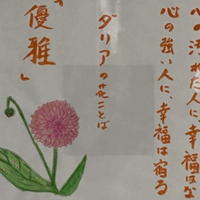 心の汚れた人に、幸福はな
心の強い人に、幸福は宿る
ダリアの花ことば
「優雅」